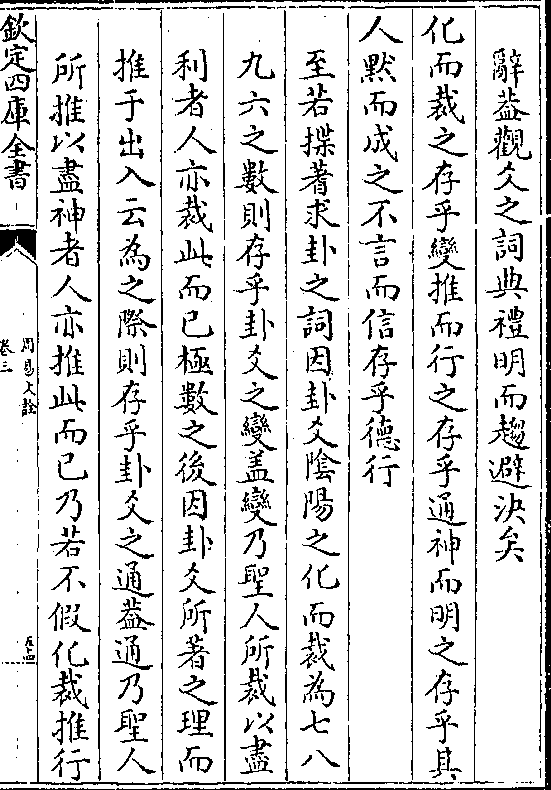 辭葢觀爻之詞典禮明而趨避決矣
化而裁之存乎變推而行之存乎通神而明之存乎其
人黙而成之不言而信存乎德行
至若揲蓍求卦之詞因卦爻陰陽之化而裁為七八
九六之數則存乎卦爻之變盖變乃聖人所裁以盡
利者人亦裁此而已極數之後因卦爻所著之理而
推于出入云為之際則存乎卦爻之通葢通乃聖人
所推以盡神者人亦推此而已乃若不假化裁推行
欽定四庫全書
周易文詮
卷三
五十四